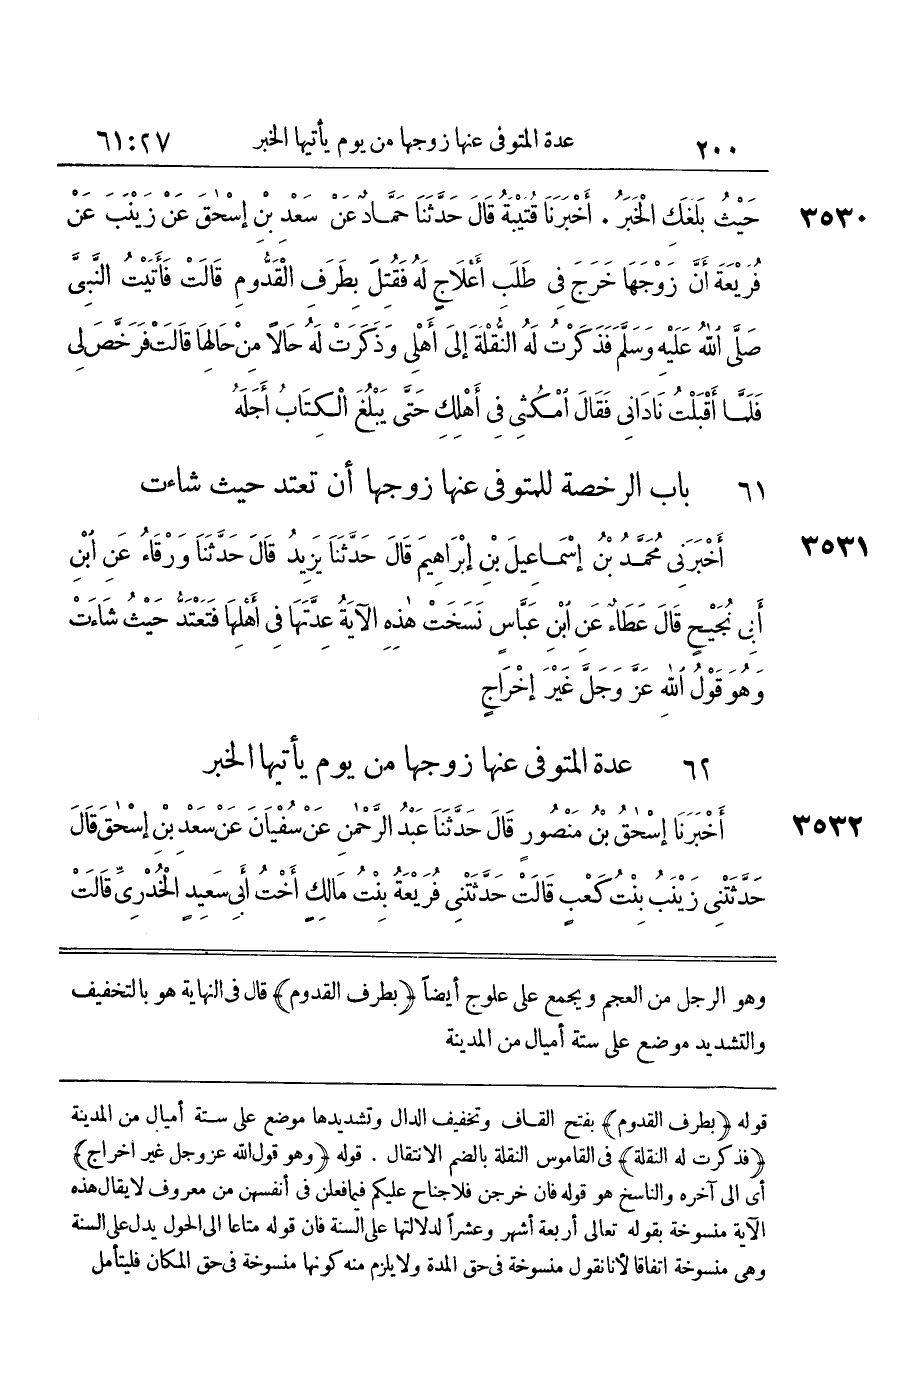 ٢٠٠ عدة المتوفى عنها زوجها من يوم يأتيها الخبر ٦١:٢٧
٣٥٣٠ حَيْثُ بَلَغَكِ الْخَبَرُ . أَخْبَرَنَا قُتَيْبَةُ قَالَ حَدَّثَنَا حَمَّادٌ عَنْ سَعْدِ بْنِ إِسْحٰقَ عَنْ زَيْنَبَ عَنْ
فُرَيْعَةَ أَنَّ زَوْجَهَا خَرَجَ فِى طَلَبِ أَعْلَاجٍ لَهُ فَقُتِلَ بِطَرَفِ الْقَدُّومِ قَالَتْ فَأَتَيْتُ النَّبِىَّ
صَلَّى اللهُ عَلَيْهِ وَسَلَّمَ فَذَكَرْتُ لَهُ النُّقْلَةَ إِلَى أَهْلِى وَذَكَرَتْ لَهُ حَالاً مِنْ حَالِهَا قَالَتْ فَرَخَّصَ لِى
فَلَمَّا أَقْبَلْتُ نَادَانِى فَقَالَ اُمْكُثِى فِى أَهْلِكِ حَتَّى يَبْلُغَ الْكِتَابُ أَجَلَهُ
٦١ باب الرخصة للمتوفى عنها زوجها أن تعتد حيث شاءت
٣٥٣١ أَخْبَرَنِى مُحَمَّدُ بْنُ إِسْمَاعِيلَ بْنِ إِبْرَاهِيمَ قَالَ حَدَّثَنَا يَزِيدُ قَالَ حَدَّثَنَا وَرْقَاءُ عَنِ ابْنِ
أَبِى نُجَيْحٍ قَالَ عَطَاءٌ عَنِ ابْنِ عَبَّاسٍ نَسَخَتْ هٰذِهِ الآيَةُ عِدَّتَهَا فِى أَهْلِهَا فَتَعْتَدُّ حَيْثُ شَاءَتْ
وَهُوَ قَوْلُ اللهِ عَزَّ وَجَلَّ غَيْرَ إِخْرَاجٍ
٦٢ عدة المتوفى عنها زوجها من يوم يأتيها الخبر
٣٥٣٢ أَخْبَرَنَا إِسْحٰقُ بْنُ مَنْصُورٍ قَالَ حَدَّثَنَا عَبْدُ الرَّحْمٰنِ عَنْ سُفْيَانَ عَنْ سَعْدِ بْنِ إِسْحٰقَ قَالَ
حَدَّثَتْنِى زَيْنَبُ بِنْتُ كَعْبٍ قَالَتْ حَدَّثَتْنِى فُرَيْعَةُ بِنْتُ مَالِكٍ أُخْتُ أَبِى سَعِيدٍ الْخُدْرِىِّ قَالَتْ
وهو الرجل من العجم ويجمع على علوج أيضاً ﴿بطرف القدوم﴾ قال فى النهاية هو بالتخفيف
والتشديد موضع على ستة أميال من المدينة
قوله ﴿بطرف القدوم﴾ بفتح القاف وتخفيف الدال وتشديدها موضع على ستة أميال من المدينة
﴿فذكرت له النقلة﴾ فى القاموس النقلة بالضم الانتقال . قوله ﴿وهو قول الله عز وجل غير اخراج﴾
أى الى آخره والناسخ هو قوله فان خرجن فلا جناح عليكم فيما فعلن فى أنفسهن من معروف لا يقال هذه
الآية منسوخة بقوله تعالى أربعة أشهر وعشراً لدلالتها على السنة فان قوله متاعا الى الحول يدل على السنة
وهى منسوخة اتفاقا لأنا نقول منسوخة فى حق المدة ولا يلزم منه كونها منسوخة فى حق المكان فليتأمل